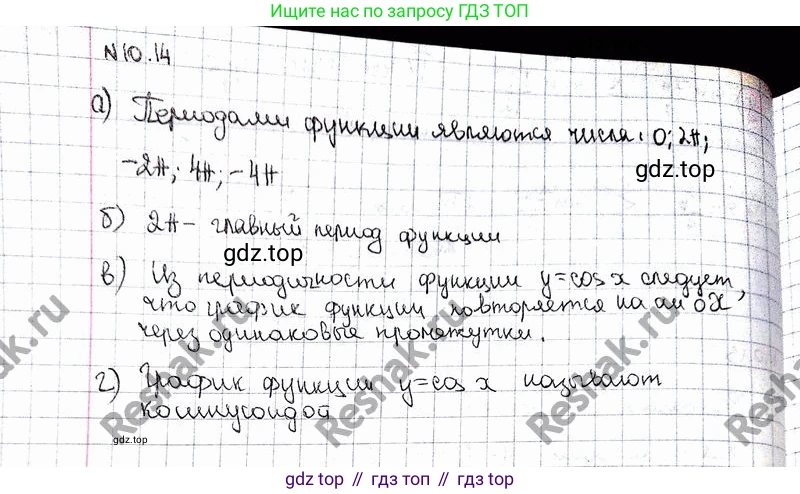 Ищите нас по запросу ГДЗ ТОП
N10.14
а) Периодами функции являются числа: 0; 2π;
-2π; 4π; -4π
gdz.top
б) 2π - главный период функции
gdz.top
в) Из периодичности функции y=cos x следует,
что график функции повторяется на оси OX
через одинаковые промежутки.
г) График функции y=cos x называют
косинусоидой
gdz.top
Reshak.ru
Reshak.ru
Reshak.ru
Reshak.ru
Reshak.ru
gdz top // гдз топ // gdz.top